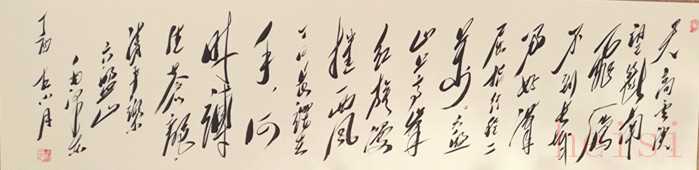 天高雲淡
望斷南
飛雁
不到長城
非好漢
屈指行程二
萬六盤
山上高峰
紅旗漫
捲西風
今日長纓在
手，何
時縛
住蒼龍
清平樂
六盤山
heisi